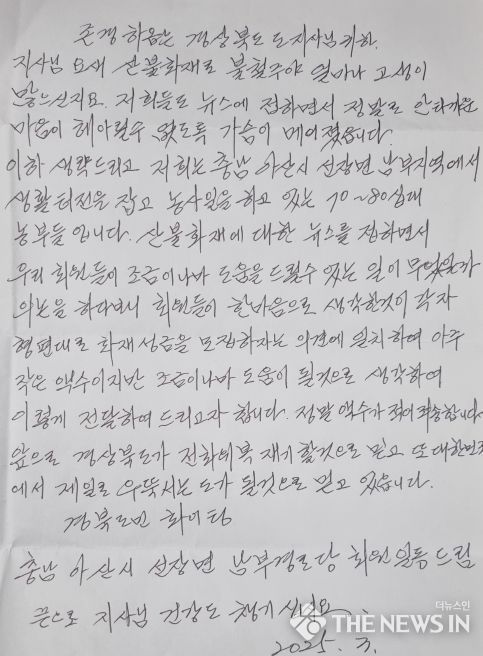 존경하옵는 경상북도 도지사님 귀하.
지사님 요새 산불화재로 불철주야 얼마나 고생이
많으신지요. 저희들도 뉴스에 접하면서 정말로 안타까운
마음이 헤아릴수 없도록 가슴이 메어졌읍니다.
이하 생략드리고 저희는 충남 아산시 선장면 남부지역에서
생활터전을 잡고 농사일을 하고 있는 70~80십대
농부들 입니다. 산불화재에 대한 뉴스를 접하면서
우리 회원들이 조금이나마 도움을 드릴수 있는 일이 무엇일까
의논을 하다보니 회원들이 한마음으로 생각한것이 각자
형편대로 화재성금을 모집하자는 의견에 일치하여 아주
작은 액수이지만 조금이나마 도움이 될것으로 생각하여
이렇게 전달하여 드리고자 합니다. 정말 액수가 적어 죄송합니다.
앞으로 경상북도가 전화위복 재기할것으로 믿고 또 대한민국
에서 제일로 우뚝서는 도가 될것으로 믿고 있읍니다.
경북도민 화이팅
충남 아산시 선장면 남부경로당 회원일동 드림
끝으로 지사님 건강도 챙기십시요
더뉴스인
THE NEWS IN
2025. 3.